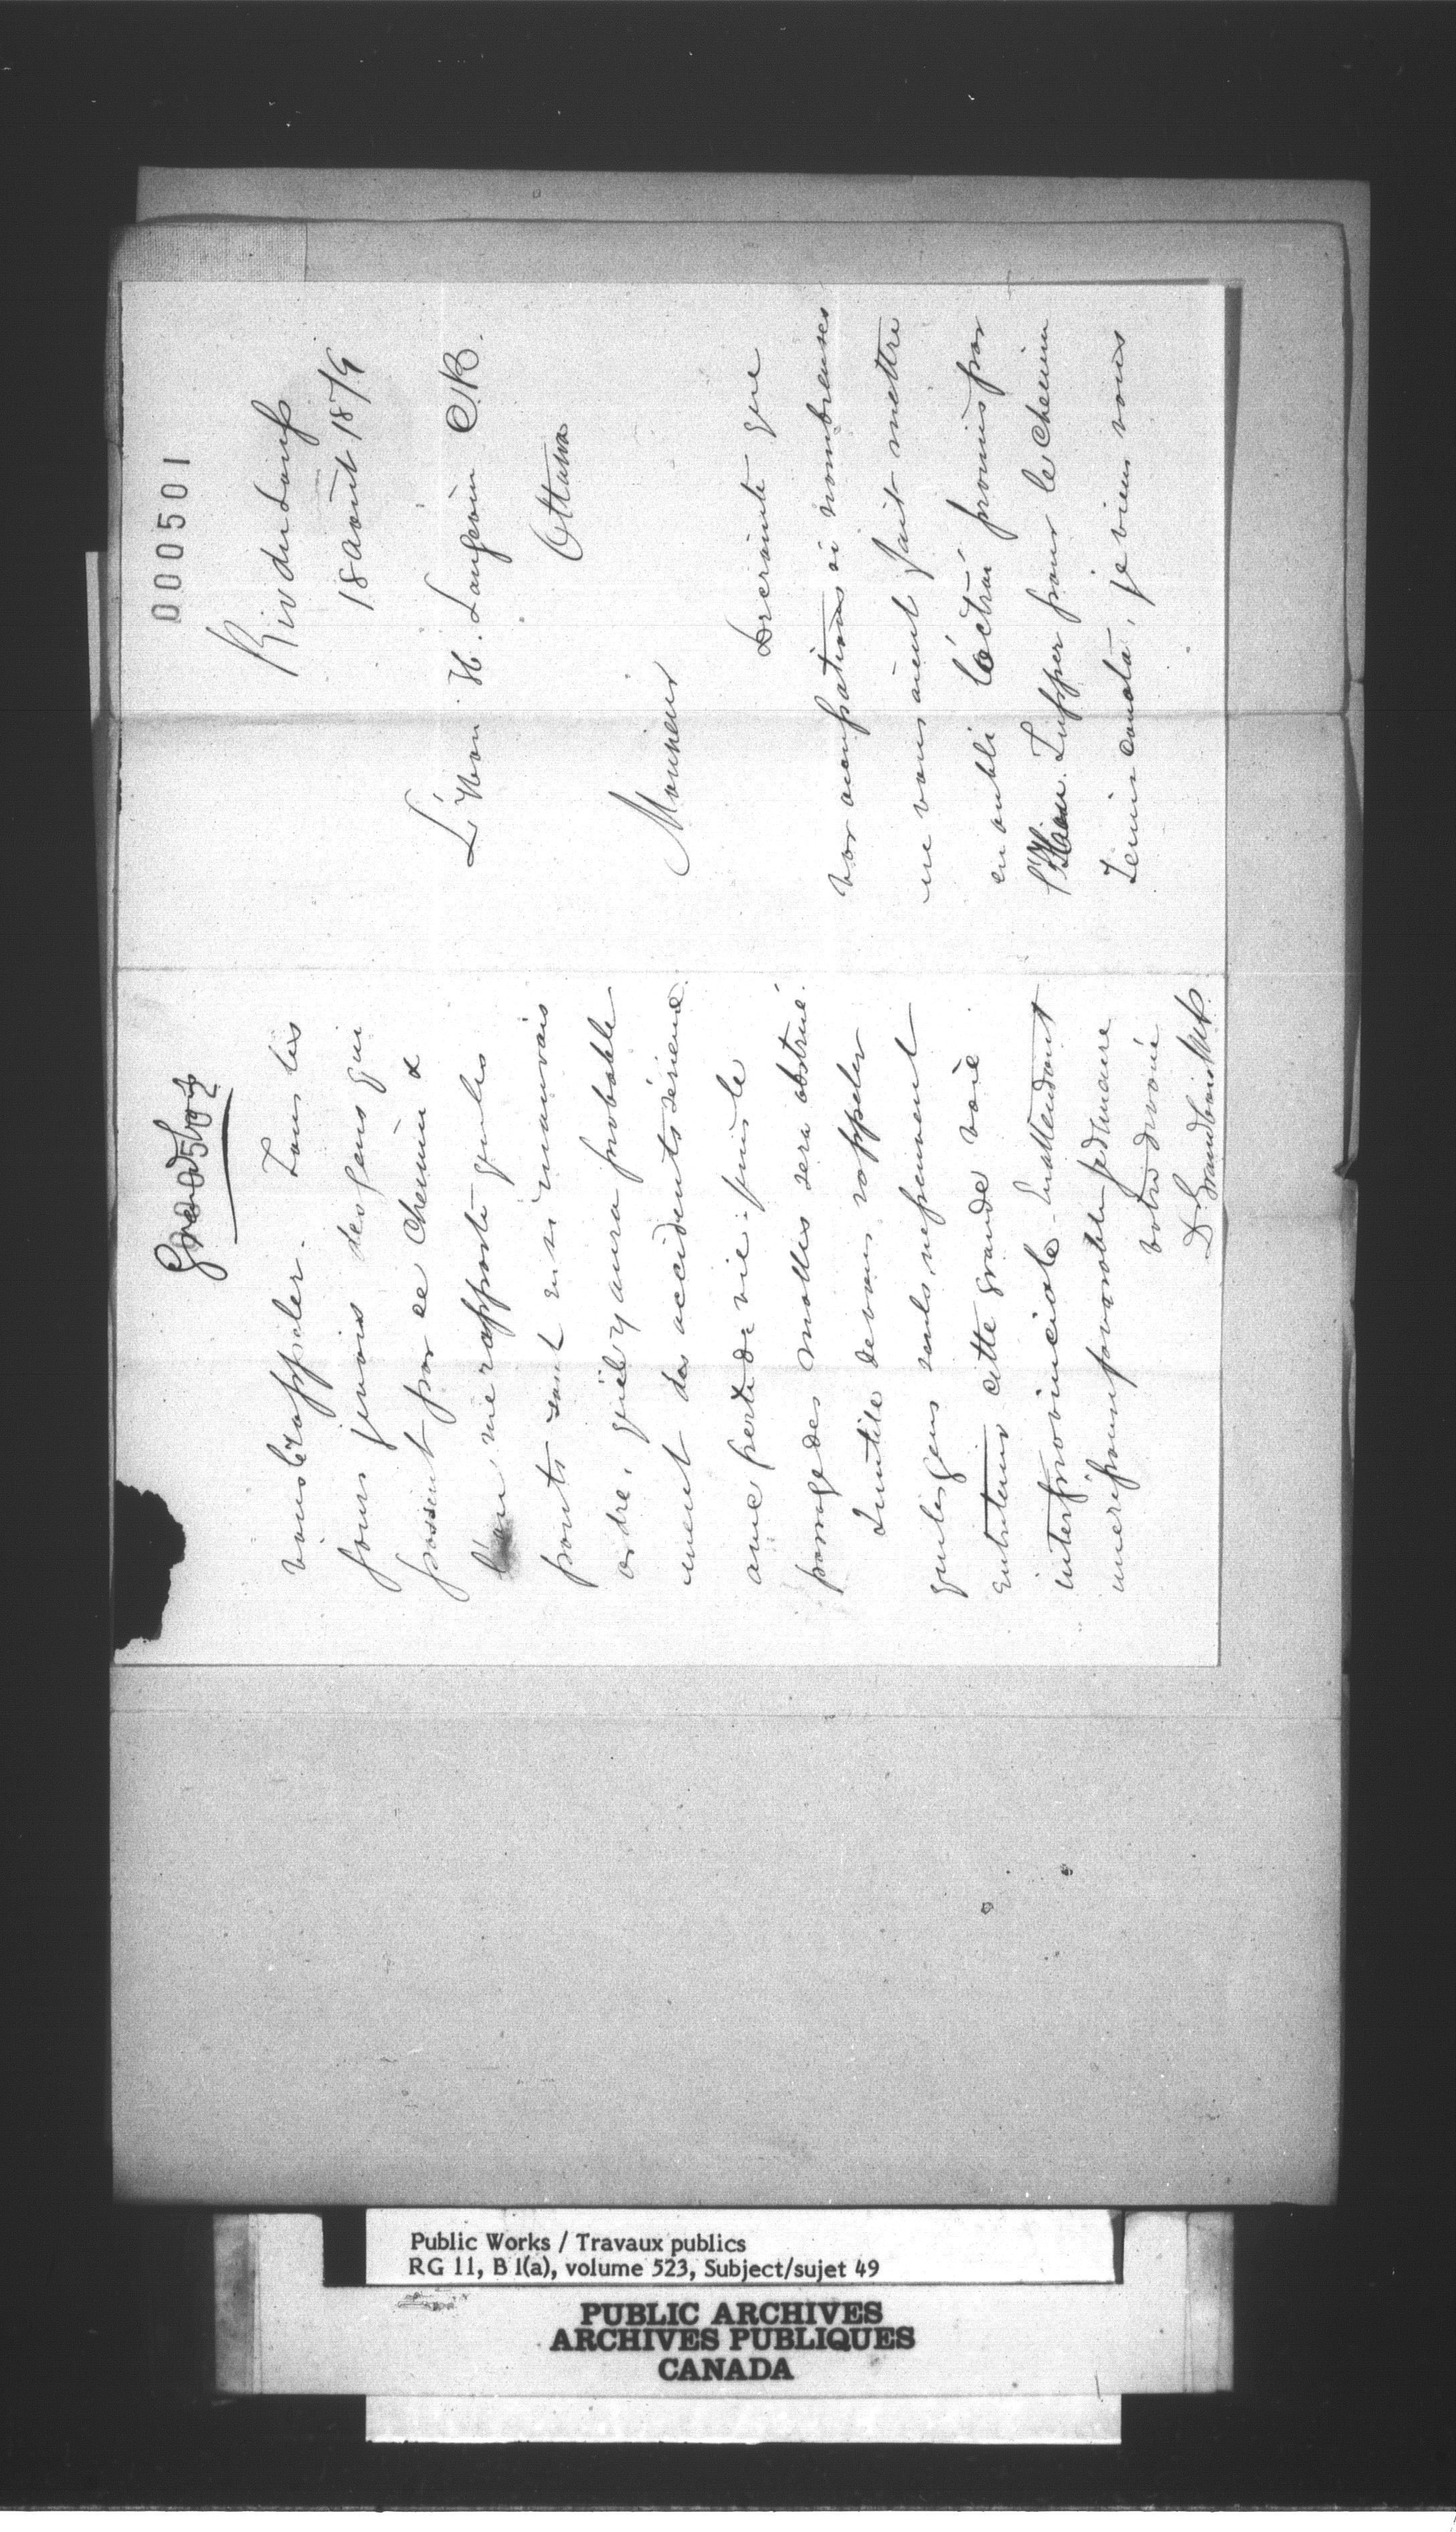 000501
Riv du Loup
18 aout 1879
L'Hon H. Langevin C.B.
Ottawa
Monsieur
De crainte que
vos occupations si nombreuses
ne vous aient fait mettre
en oubli l'octroi promis par
l'Hon. Tupper pour le Chemin
Temiscouata, je viens vous
vous le rappeler. Tous les
jours je vois des gens qui
passent par ce chemin &
l'on me rapporte que les
ponts sont en si mauvais
ordre, qu'il y aura probable
ment des accidents sérieux
avec perte de vie. puis le
passage des malles sera obstrué.
Inutile de vous rappeler
que les gens seuls, ne peuvent
entretenir cette grande voie
interprovinciale. En attendant
une réponse favorable je demeure
votre dévoué
D. Grandbois M.P.
Public Works / Travaux publics
RG 11, B 1(a), volume 523, Subject/sujet 49
PUBLIC ARCHIVES
ARCHIVES PUBLIQUES
CANADA